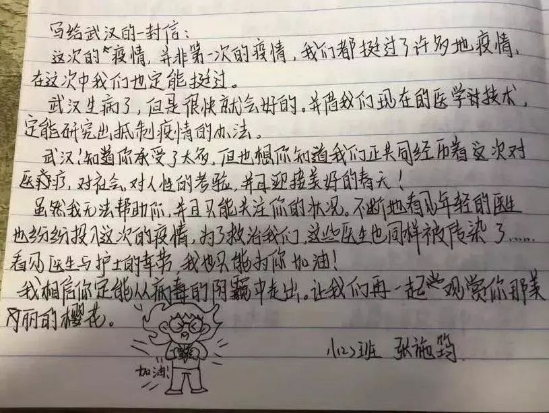 写给武汉的一封信：
这次的"疫情，并非第一次的疫情，我们都挺过了许多地疫情，
在这次中我们也定能挺过。
武汉生病了，但是很快就会好的。并借我们现在的医学科技术，
定能研究出抵制疫情的办法。
武汉！知道你承受了太多，但也想你知道我们正共同经历着这次对
医疗，对社会，对人性的考验，并且迎接美好的春天！
虽然我无法帮助你，并且只能关注你的状况。不断地看见年轻的医生
也纷纷投入这次的疫情，为了救治我们，这些医生也同样被传染了……
看见医生与护士的牵劳，我也只能为你加油！
我相信你定能从病毒的阴霾中走出。让我们再一起观赏你那美
丽的樱花。
加油！
小(2)班 张施筠